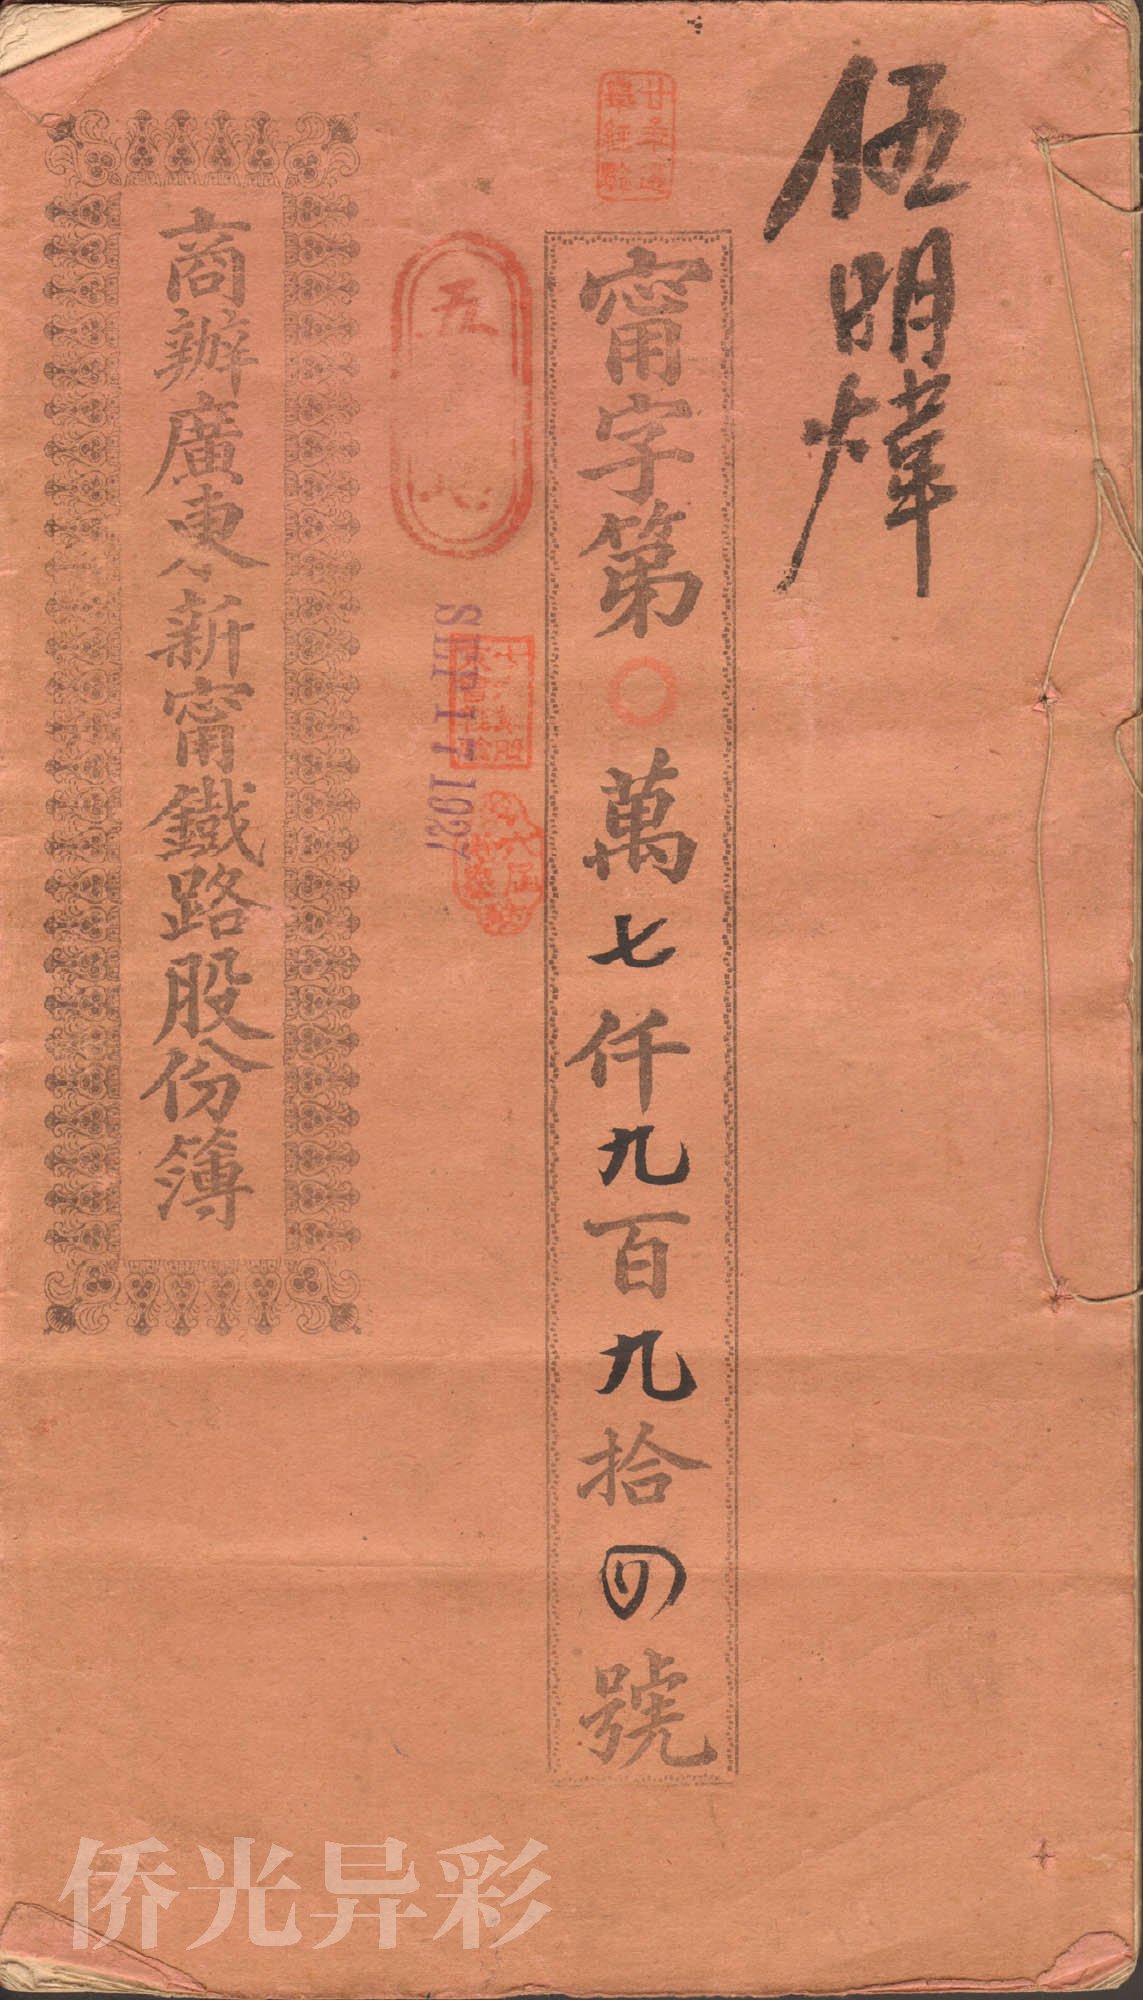 伍明煒
甯字第〇萬七仟九百九拾四號
五
SEP 17 1927
商辦廣東新甯鐵路股份簿
侨光异彩